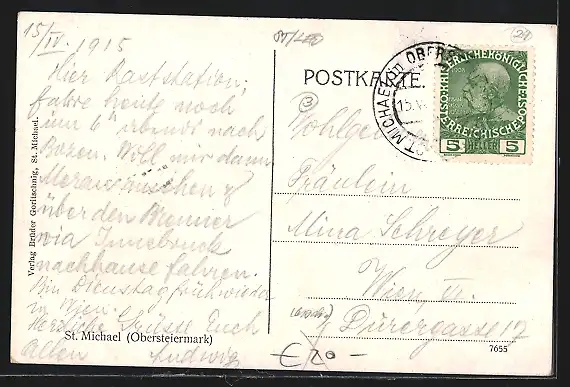 15/IV. 1915
Hier Raststation;
fahre heute noch
um 6h abends nach
Bozen. Will mir dann
Meran anschen &
über den Brenner
via Innsbruck
nachhause fahren.
Bin Dienstag früh wieder
in Wien.
Herzliche Grüsse Euch
Allen Ludwig
Verlag Brüder Goritschnig, St. Michael.
St. Michael (Obersteiermark)
POSTKARTE.
ST. MICHAEL in OBER
15.V
KAISERLICHE KÖNIGLICHE
ÖSTERREICHISCHE POST
1908
5 HELLER 5
Wohlgeb
Fräulein
Mina Schreyer
Wien, VI.
Dürergasse 17
3
29
€ 20 -
7655